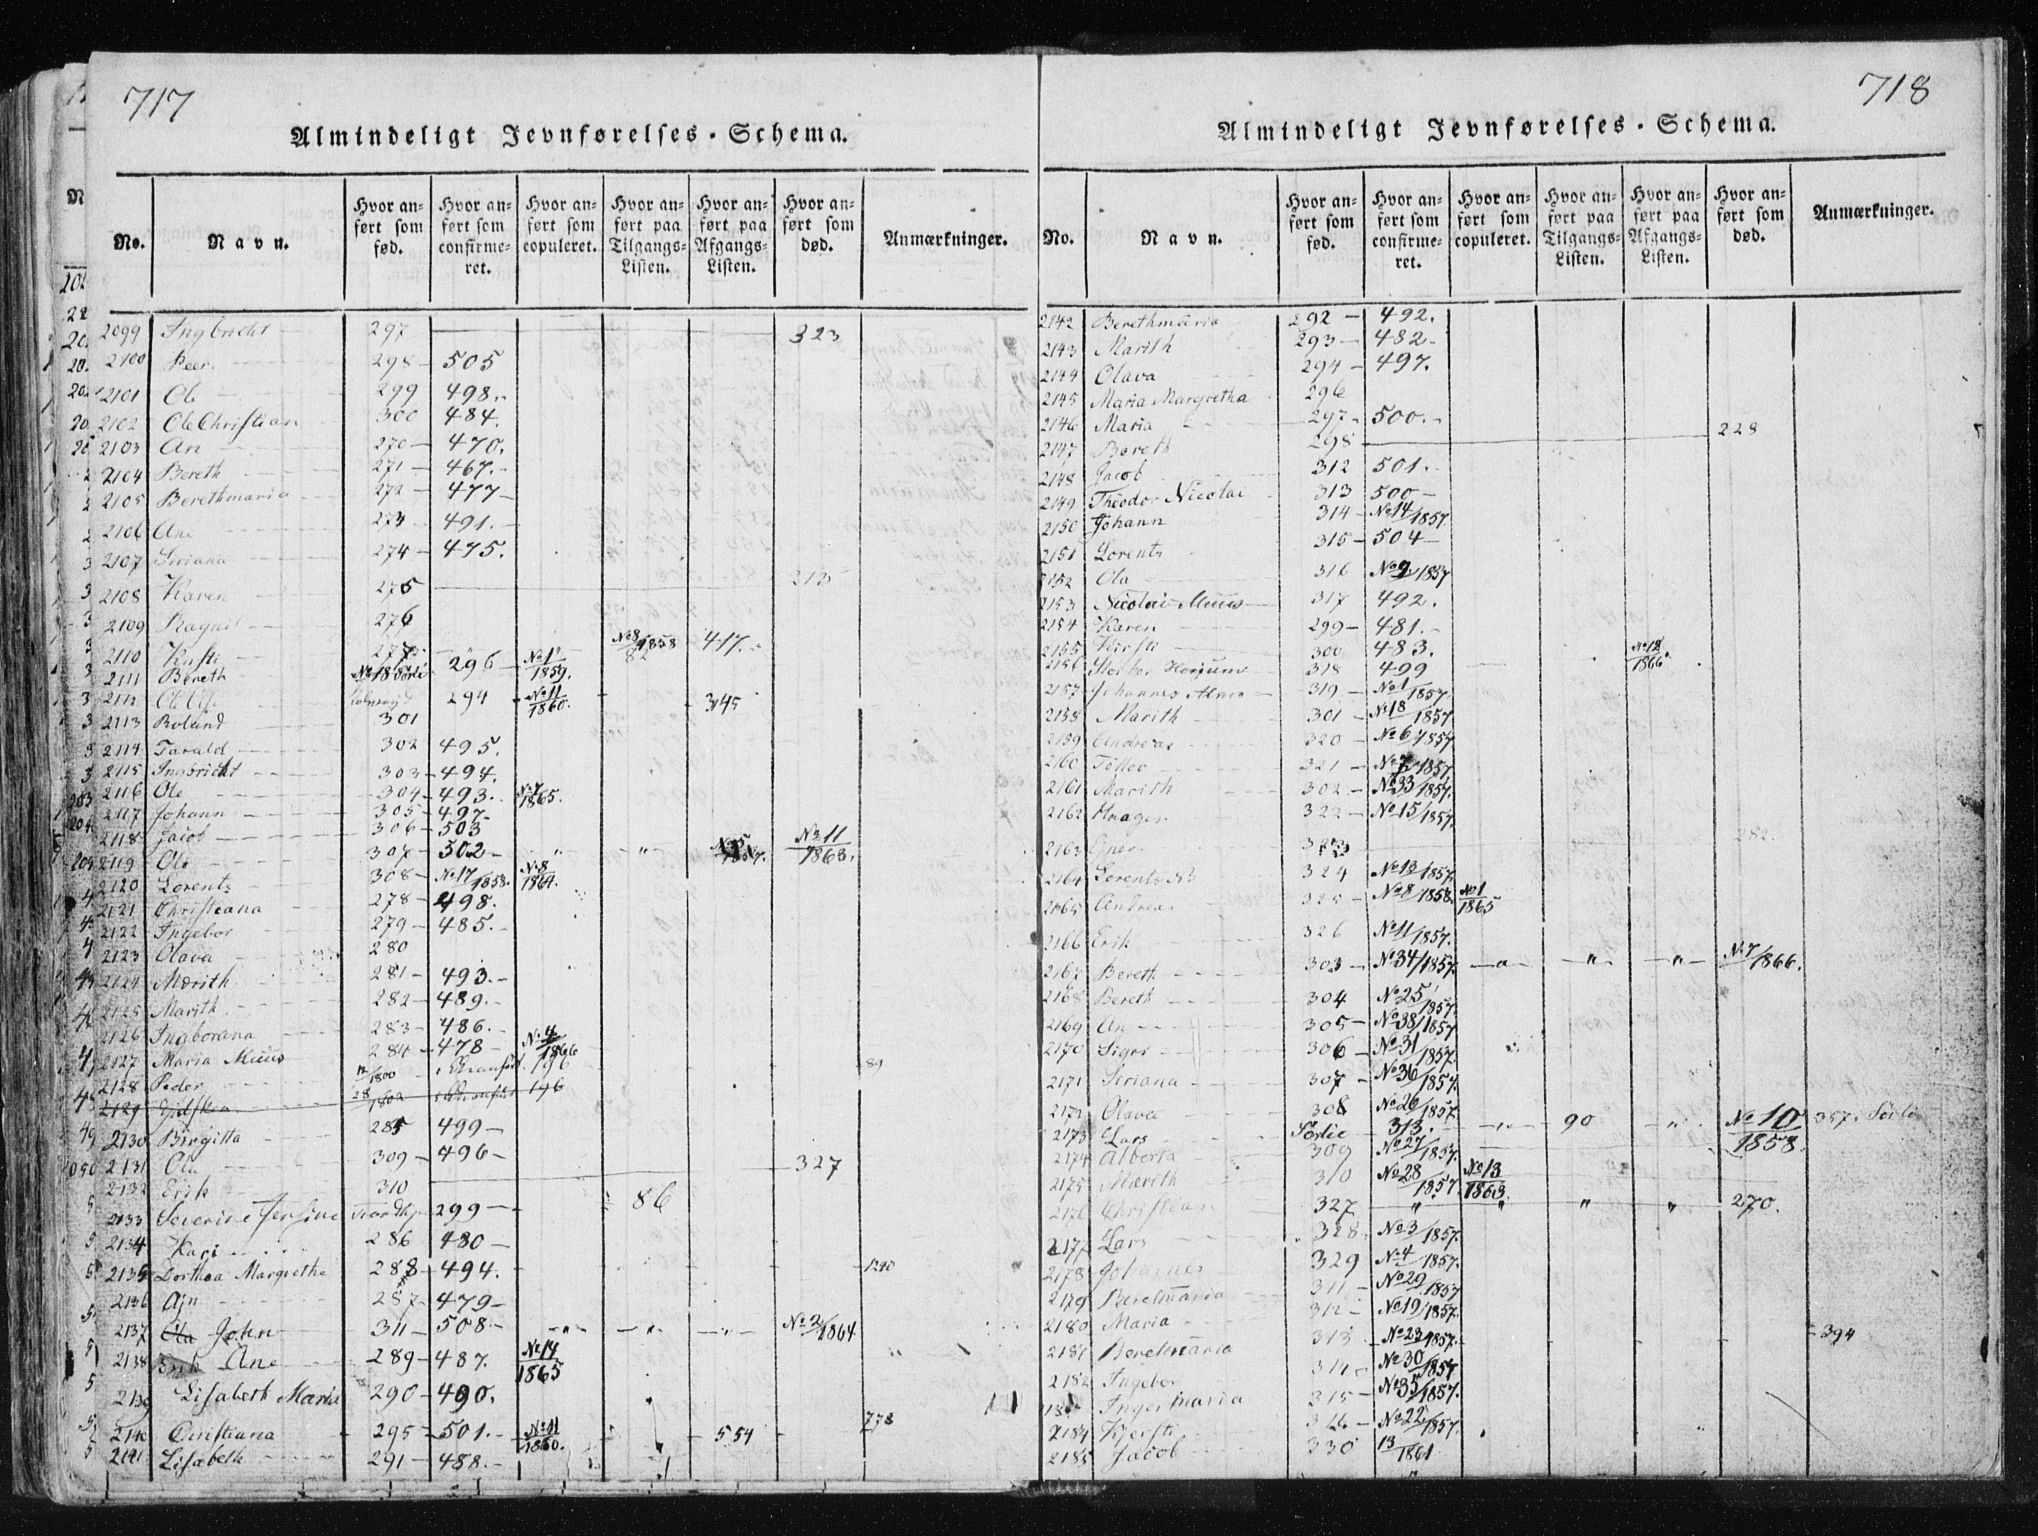 717
Almindeligt Jevnførelses-Schema.
No. Navn. Hvor anført som fød. Hvor anført som confirmeret. Hvor anført som copuleret. Hvor anført paa Tilgangs-Listen. Hvor anført paa Afgangs-Listen. Hvor anført som død. Anmærkninger.
2099 Ingbricht 297 323
2100 Peer 298 505
2101 Ole 299 498.
2102 Ole Christian 300 484.
2103 An 270 470.
2104 Bereth 271 467.
2105 Berethmaria 272 477
2106 Ane 273 491.
2107 Siriana 274 475.
2108 Karen 275 213
2109 Ragnil 276
2110 Kirsti 277 No 8/1858 82 417.
2111 Bereth No 18 Sørli 296 No 1/1859.
2112 Ole 294 No 11/1860. 345
2113 Roland 301
2114 Tarald 302 495.
2115 Ingbricht 303 494.
2116 Ole 304 493. No 7/1865.
2117 Johann 305 497.
2118 Jacob 306 503
2119 Ole 307 502 " " No 11/1863.
2120 Lorents 308 No 17/1858. No 8/1864.
2121 Christiana 278 498.
2122 Ingebor 279 485.
2123 Olava 280
2124 Merith 281 493.
2125 Marith 282 489.
2126 Ingborana 283 486.
2127 Maria Muus 284 478 No 4/1866
2128 Peder 12/1800 196 89
2129 28/1802 196
2130 Birgitta 285 499
2131 Ola 309 496 327
2132 Erik 310
2133 Severine Jensine Trondhj 299 86
2134 Kari 286 480
2135 Dorthea Margrethe 288 494. 1240
2136 Ajn 287 479
2137 Ola John 311 508 " " " No 2/1864
2138 Erik Ane 289 487. No 14/1865
2139 Lisabeth Maria 290 490.
2140 Christiana 295 501. No 11/1860. 554 778
2141 Lisabeth 291 488.
718
Almindeligt Jevnførelses-Schema.
No. Navn. Hvor anført som fød. Hvor anført som confirmeret. Hvor anført som copuleret. Hvor anført paa Tilgangs-Listen. Hvor anført paa Afgangs-Listen. Hvor anført som død. Anmærkninger.
2142 Berethmaria 292 492.
2143 Marith 293 482
2144 Olava 294 497.
2145 Maria Margretha 296
2146 Maria 297 500.
2147 Bereth 298 228
2148 Jacob 312 501.
2149 Theodor Nicolai 313 500
2150 Johann 314 No 14/1857.
2151 Lorents 315 504
2152 Ola 316 No 9/1857
2153 Nicolai Muus 317 492.
2154 Karen 299 481.
2155 Kirsti 300 483. No 12/1866.
2156 318 499
2157 Johannes 319 No 1/1857
2158 Marith 301 No 18/1857
2159 Andreas 320 No 6/1857
2160 321 No 7/1857
2161 Marith 302 No 33/1857.
2162 Haagen 322 No 15/1857.
2163 323 282.
2164 Lorents 324 No 13/1857.
2165 Andreas 325 No 8/1858. No 1/1865
2166 Erik 326 No 11/1857.
2167 Bereth 303 No 34/1857 " " " No 7/1866.
2168 Bereth 304 No 25/1857.
2169 An 305 No 38/1857
2170 Sigri 306 No 31/1857.
2171 Siriana 307 No 36/1857.
2172 Olava 308 No 26/1857.
2173 Lars Sørlie 313. " 90 " No 10/1858. 357. Sørli
2174 Alberta 309 No 27/1857.
2175 Merith 310 No 28/1857. No 13/1863.
2176 Christian 327 " " " " 270.
2177 Lars 328 No 3/1857.
2178 Johannes 329 No 4/1857.
2179 Beretmaria 311 No 29/1857
2180 Maria 312 No 19/1857.
2181 Beretmaria 313 No 23/1857. 394
2182 Ingebor 314 No 30/1857
Ingermaria 315 No 35/1857.
2184 Kjersti 316 No 22/1857.
2185 Jacob 330 13/1861